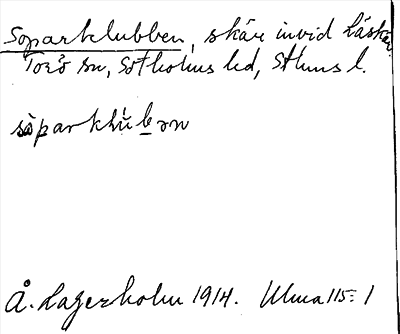 Soparklubben, skär invid Låskär
Torö sn, Sotholms hd, Sthms l.
Å. Lagerholm 1914. Ulma 115:1